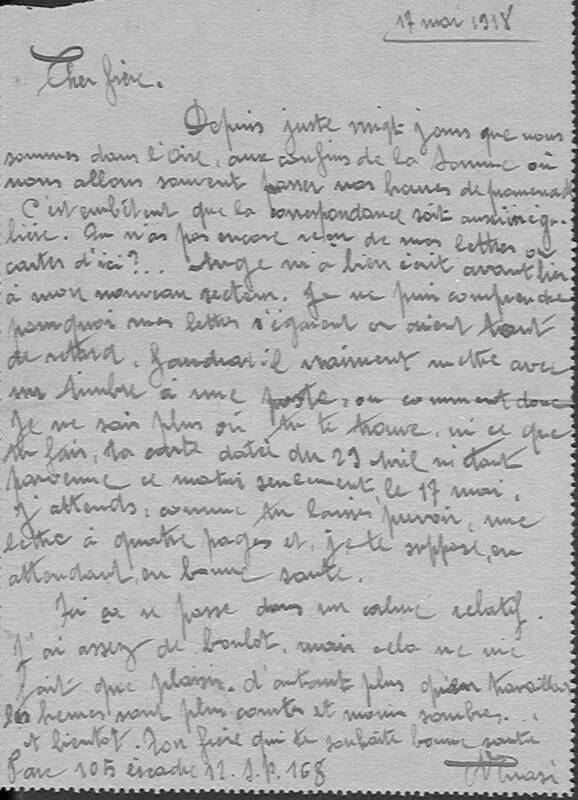 17 mai 1918
Cher frère.
Depuis juste vingt jours que nous
sommes dans l'Oise, aux confins de la Somme où
nous allons souvent passer nos heures de promenade
C'est embêtant que la correspondance soit aussi irrégu-
lière. Tu n'as pas encore reçu de mes lettres ou
cartes d'ici ?.. Ange m'a bien écrit avant hier
à mon nouveau secteur. Je ne puis comprendre
pourquoi mes lettres s'égarent ou aient tant
de retard. Faudrait il vraiment mettre avec
un timbre à une poste, ou comment donc
Je ne sais plus où tu te trouve, ni ce que
tu fais, ta carte datée du 29 Avril m'étant
parvenue ce matin seulement, le 17 mai.
J'attends, comme tu laisses prévoir, une
lettre à quatre pages et, je te suppose, en
attendant, en bonne santé.
Ici ça se passe dans un calme relatif.
J'ai assez de boulot, mais cela ne me
fait que plaisir. d'autant plus qu'en travaillant
les heures sont plus courtes et moins sombres...
A bientot. Ton frère qui te souhaite bonne santé
Parc 105 escadre 12. S.P. 168